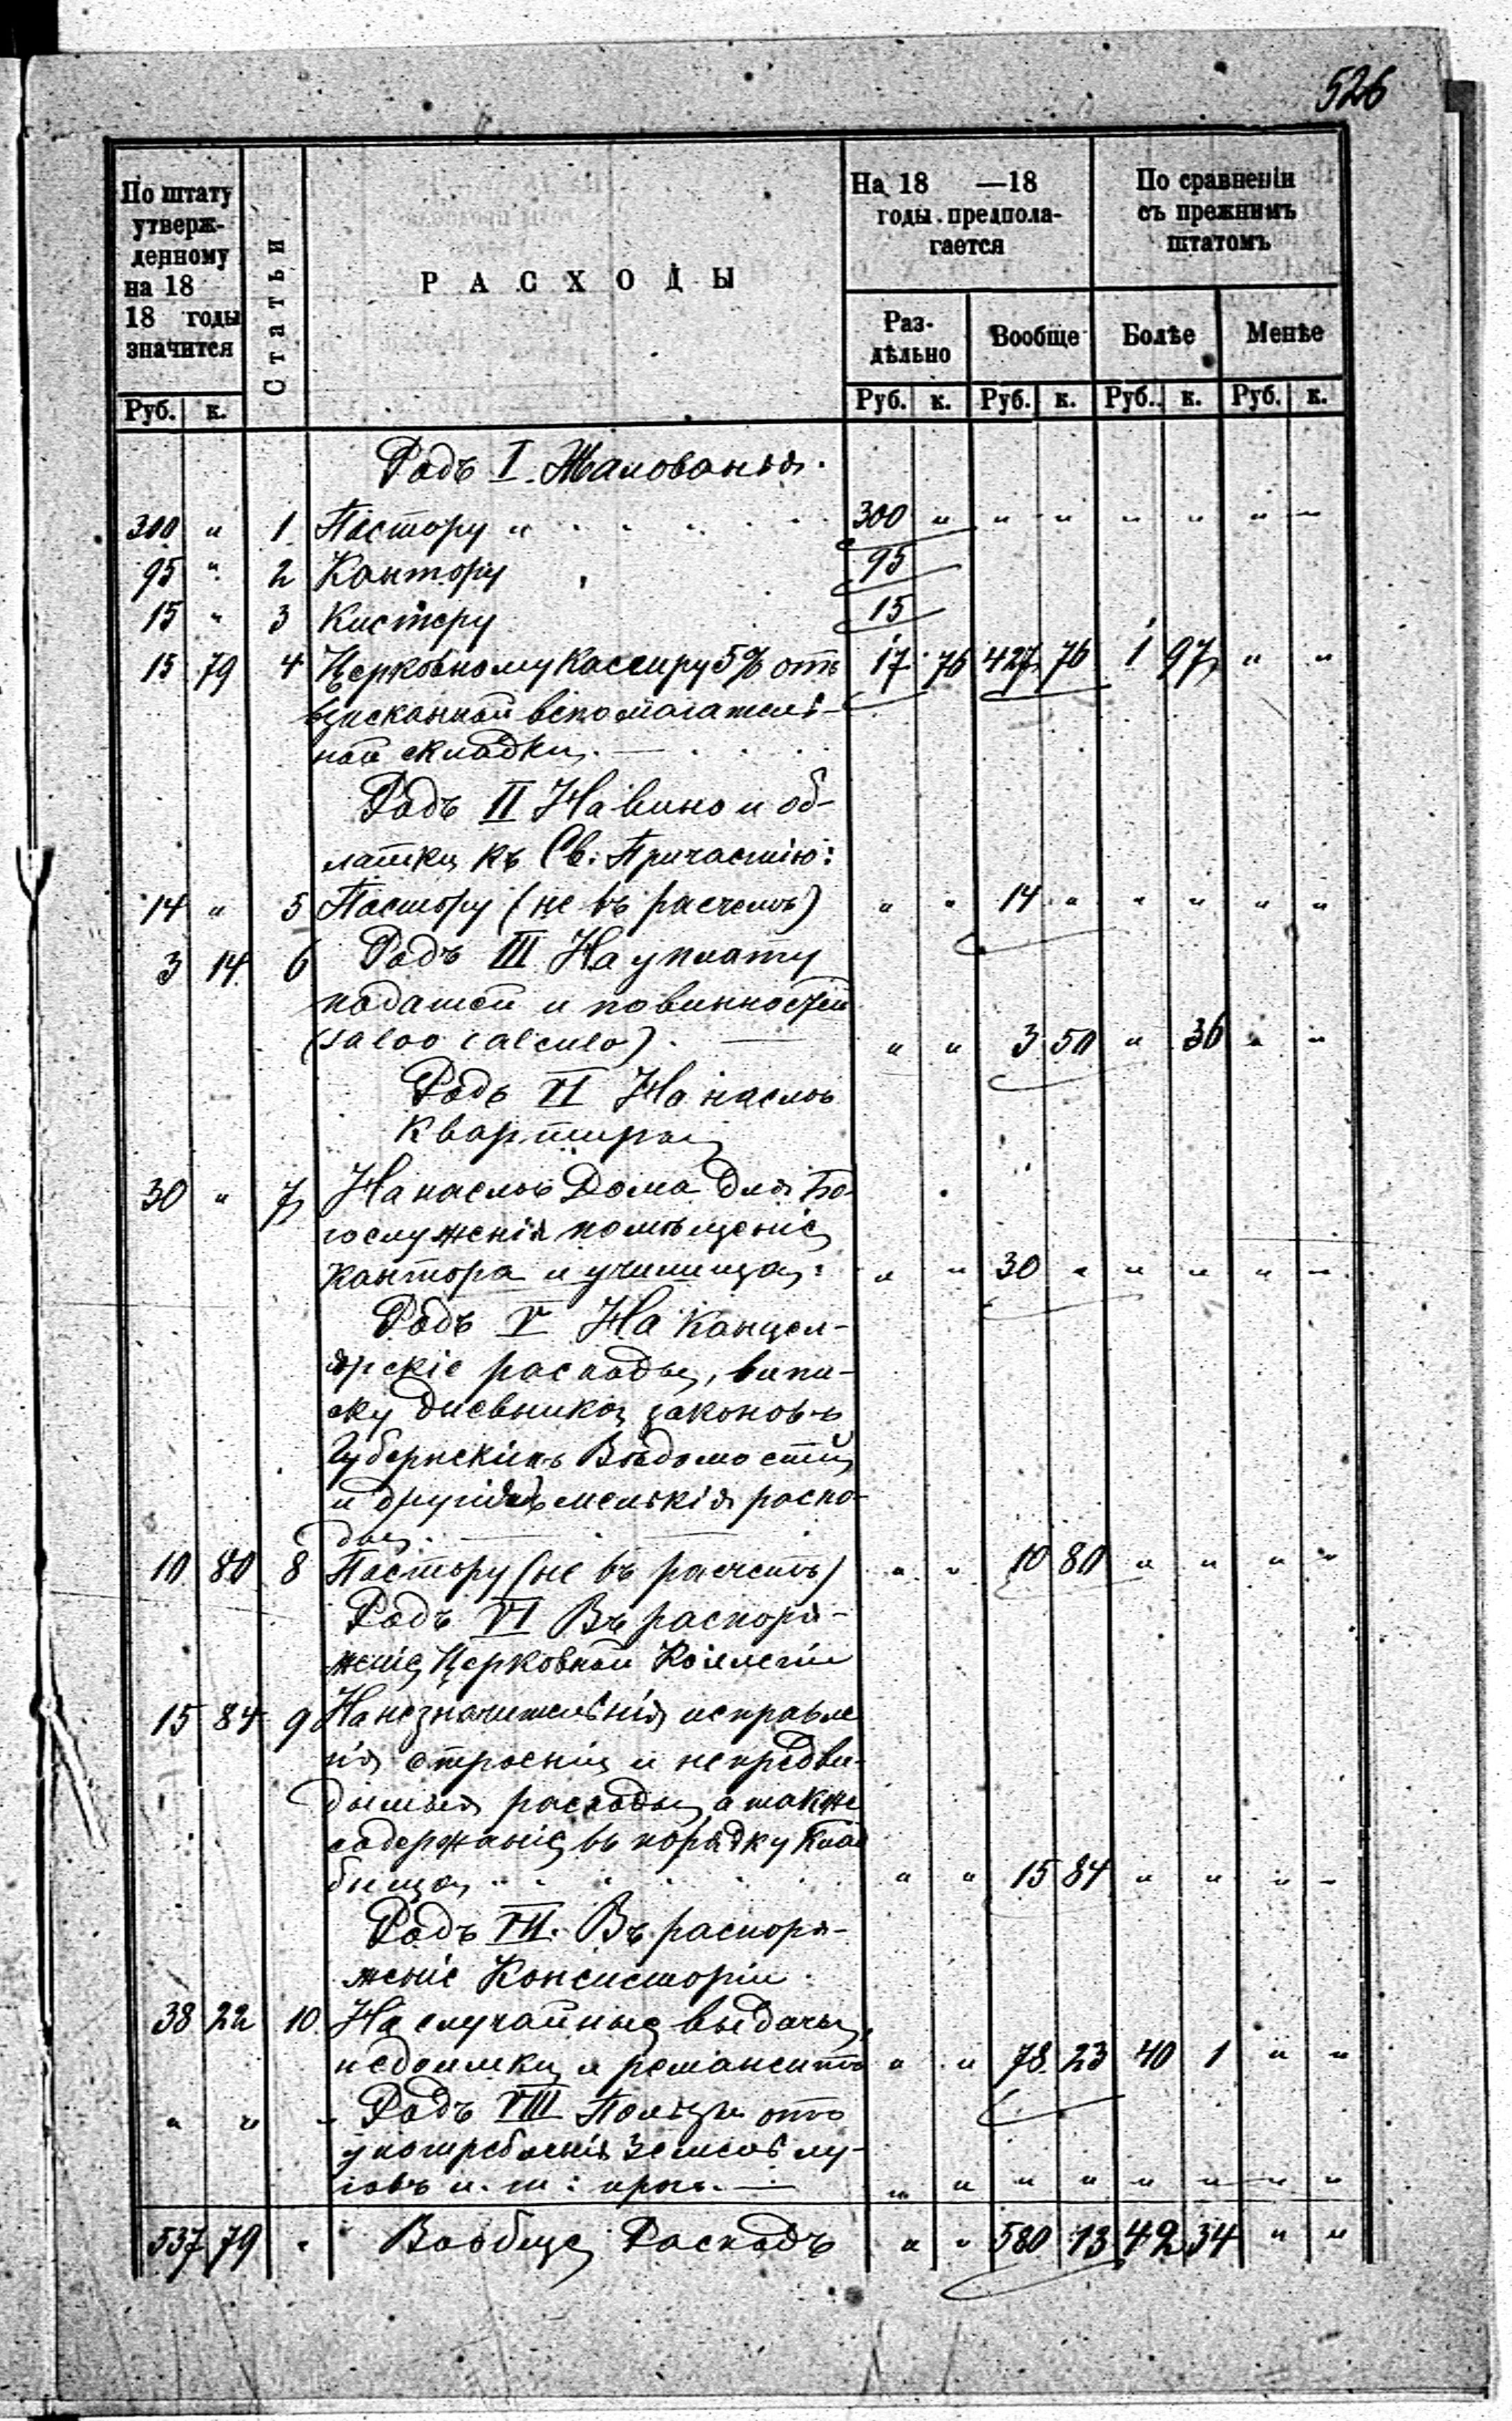 526
По штату утверж-денному на 18 18 годы значится | Статьи | РАСХОДЫ | На 18 —18 годы предпола-гается | По сравненіи съ прежнимъ штатомъ
Раз-дѣльно | Вообще | Болѣе | Менѣе
Руб. | к. | Руб. | к. | Руб. | к. | Руб. | к. | Руб. | к.
Родъ I. Жалованья.
300 " 1 Пастору " 300 " " " " " " "
95 " 2 Кантору 95
15 " 3 Кистеру 15
15 79 4 Церковному Кассиру 5% отъ 17 76 427 76 1 97 " "
взысканной вспомогатель-
ной складки. —
Родъ II На вино и об-
латки къ Св: Причастію:
14 " 5 Пастору (не въ расчетъ) " " 14 " " " " "
3 14 6 Родъ III На уплату
податей и повинностей
(salvo calculo). — " " 3 50 " 36 " "
Родъ VI На наемъ
квартиры
30 " 7 На наемъ Дома для Бо-
гослуженія помѣщеніе
Кантора и училища: " " 30 " " " " "
Родъ V На Канцел-
ярскіе расходы, выпи-
ску дневника законовъ
Губернскихъ Вѣдомостей
и другихъ мелькія расхо-
ды.
10 80 8 Пастору (не въ расчетъ) " " 10 80 " " " "
Родъ VI Въ распоря-
женіе Церковной Коллегіи
15 84 9 На незначительнія исправле
нія строеніи и непредви-
димыя расходы а также
содержаніе въ порядку Клад
бища " " 15 84 " " " "
Родъ VII. Въ распоря-
женіе Консисторіи:
38 22 10. На случайные выдачи,
недоимки и ремансигтъ " " 78 23 40 1 " "
" " " Родъ VIII Пользы отъ
употребленія земель лу-
говъ и. т: проч. — " " " " " " " "
537 79 " Вообще Расходъ " " 580 13 42 34 " "